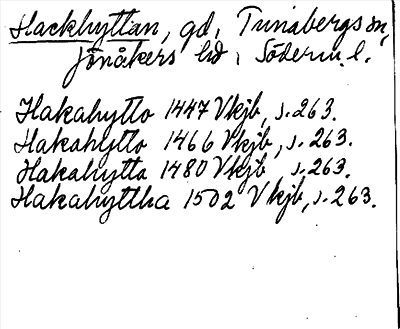 Hackhyttan, gd, Tunabergs sn,
Jönåkers hd, Söderm. l.
Hakahytto 1447 Vkjb, s. 263.
Hakahytto 1466 Vkjb, s. 263.
Hakahytta 1480 Vkjb s. 263.
Hakahyttha 1502 Vkjb, s. 263.